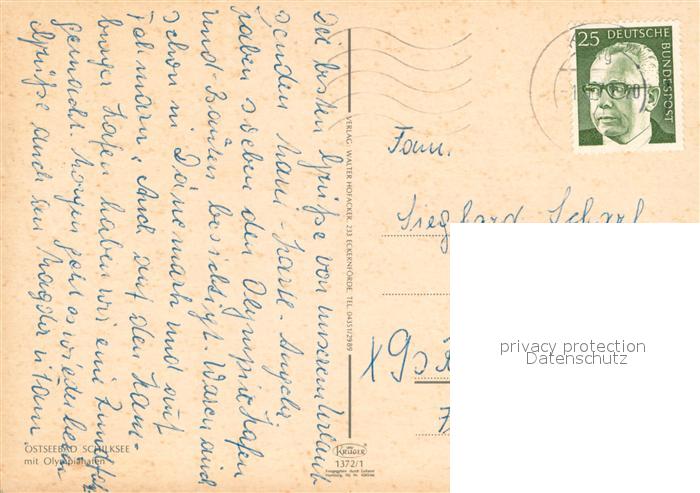 Die besten Grüße von unserem Urlaub
senden Hans-Harse-Angela
haben soeben den Olympiahafen
und-Bauten besichtigt. Waren auch
schon in Dänemark und auf
Fehmarn. Auch auf den Ham-
burger Hafen haben wir eine Rundfahrt
gemacht. Morgen geht es wieder heim
Grüße auch an
OSTSEEBAD SCHILKSEE
mit Olympiahafen
VERLAG: WALTER HOFACKER, 233 ECKERNFÖRDE, TEL. 04351/2989
KRÜGER
1372/1
25 DEUTSCHE
BUNDESPOST
Fam.
Sieghard Scharl
privacy protection
Datenschutz